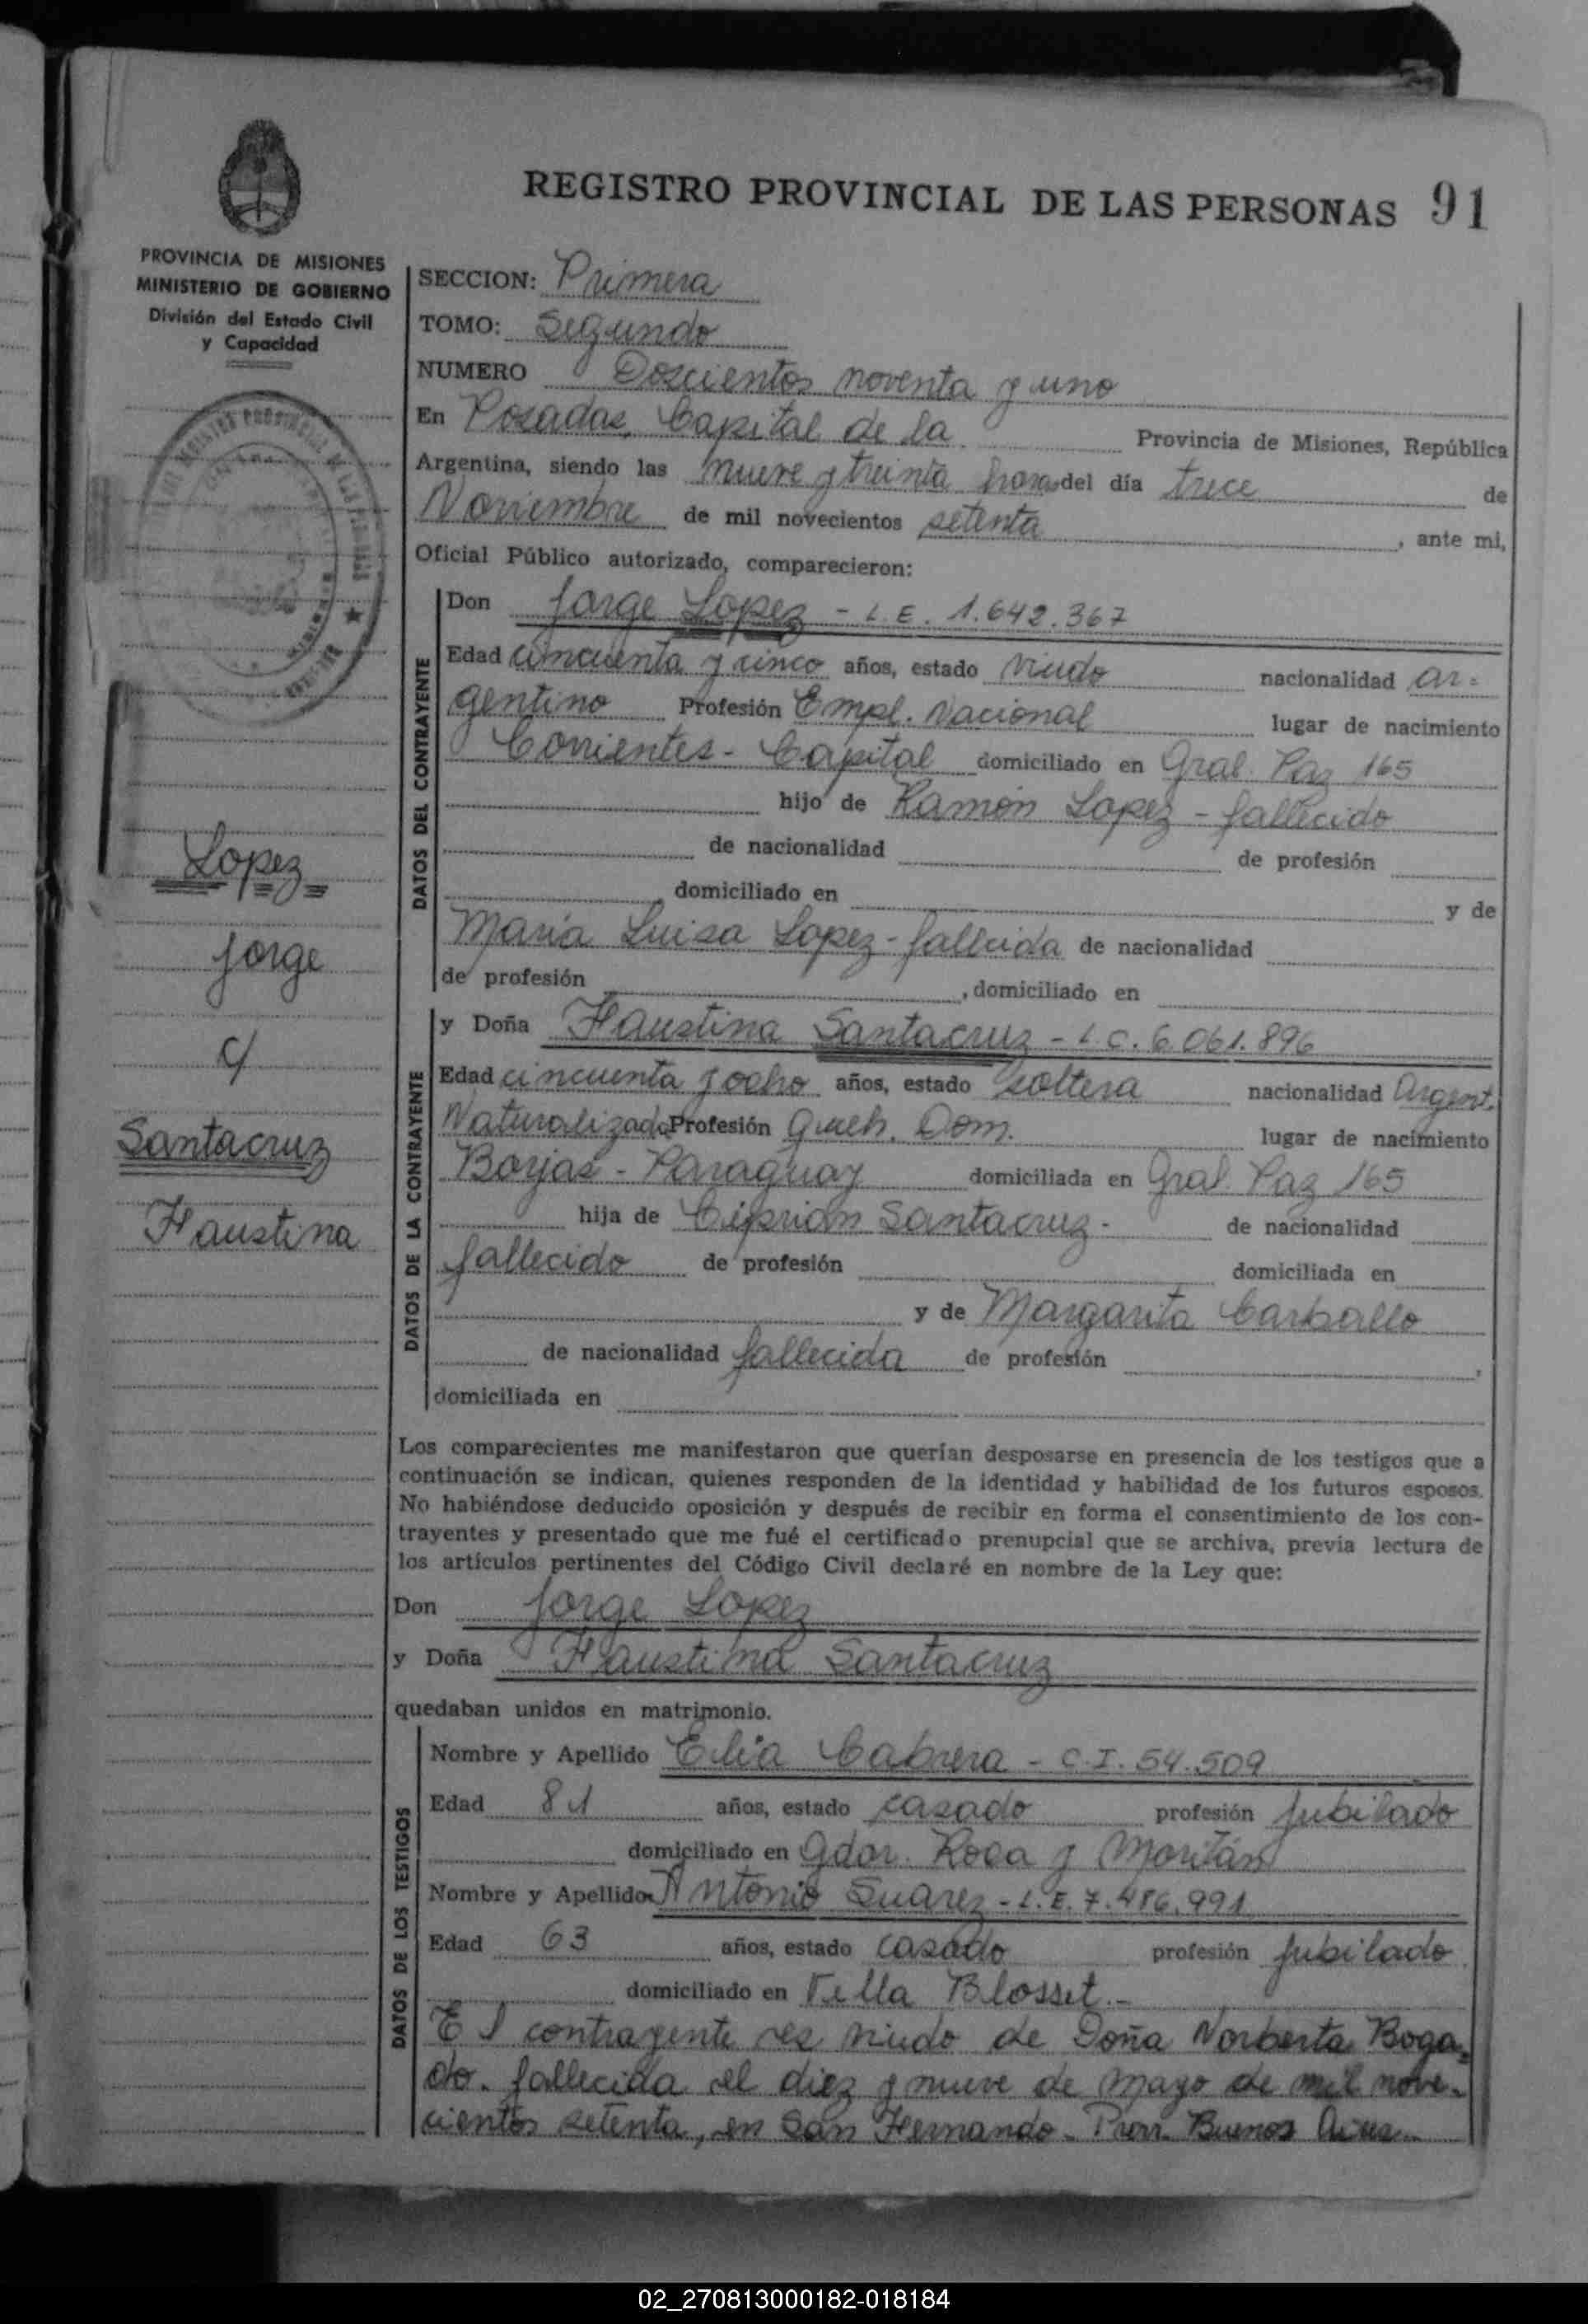 REGISTRO PROVINCIAL DE LAS PERSONAS 91
PROVINCIA DE MISIONES
MINISTERIO DE GOBIERNO
División del Estado Civil
y Capacidad
Lopez
Jorge
c/
Santacruz
Faustina
SECCION: Primera
TOMO: Segundo
NUMERO Doscientos noventa y uno
En Posadas, Capital de la Provincia de Misiones, República
Argentina, siendo las nueve y treinta horas del día trece de
Noviembre de mil novecientos setenta, ante mi,
Oficial Público autorizado, comparecieron:
DATOS DEL CONTRAYENTE
Don Jorge Lopez - L.E. 1.642.367
Edad cincuenta y cinco años, estado viudo nacionalidad ar-
gentino Profesión Empl. Nacional lugar de nacimiento
Corrientes - Capital domiciliado en Gral. Paz 165
hijo de Ramón Lopez - fallecido
de nacionalidad de profesión
domiciliado en y de
Maria Luisa Lopez - fallecida de nacionalidad
de profesión , domiciliado en
DATOS DE LA CONTRAYENTE
y Doña Faustina Santacruz - L.C. 6.061.896
Edad cincuenta y ocho años, estado soltera nacionalidad Argent.
Naturalizada Profesión Queh. Dom. lugar de nacimiento
Borjas - Paraguay domiciliada en Gral. Paz 165
hija de Ciprian Santacruz - de nacionalidad
fallecido de profesión domiciliada en
y de Margarita Carballo
de nacionalidad fallecida de profesión ,
domiciliada en
Los comparecientes me manifestaron que querían desposarse en presencia de los testigos que a
continuación se indican, quienes responden de la identidad y habilidad de los futuros esposos.
No habiéndose deducido oposición y después de recibir en forma el consentimiento de los con-
trayentes y presentado que me fué el certificado prenupcial que se archiva, previa lectura de
los artículos pertinentes del Código Civil declaré en nombre de la Ley que:
Don Jorge Lopez
y Doña Faustina Santacruz
quedaban unidos en matrimonio.
DATOS DE LOS TESTIGOS
Nombre y Apellido Elia Cabrera - C.I. 54.509
Edad 81 años, estado casado profesión Jubilado
domiciliado en Gdor. Roca y Moritán
Nombre y Apellido Antonio Suarez - L.E. 7.486.991
Edad 63 años, estado casado profesión Jubilado
domiciliado en Villa Blosset.-
El contrayente es viudo de Doña Norberta Boga-
do. fallecida el diez y nueve de mayo de mil nove-
cientos setenta, en San Fernando - Prov. Buenos Aires.-
02_270813000182-018184